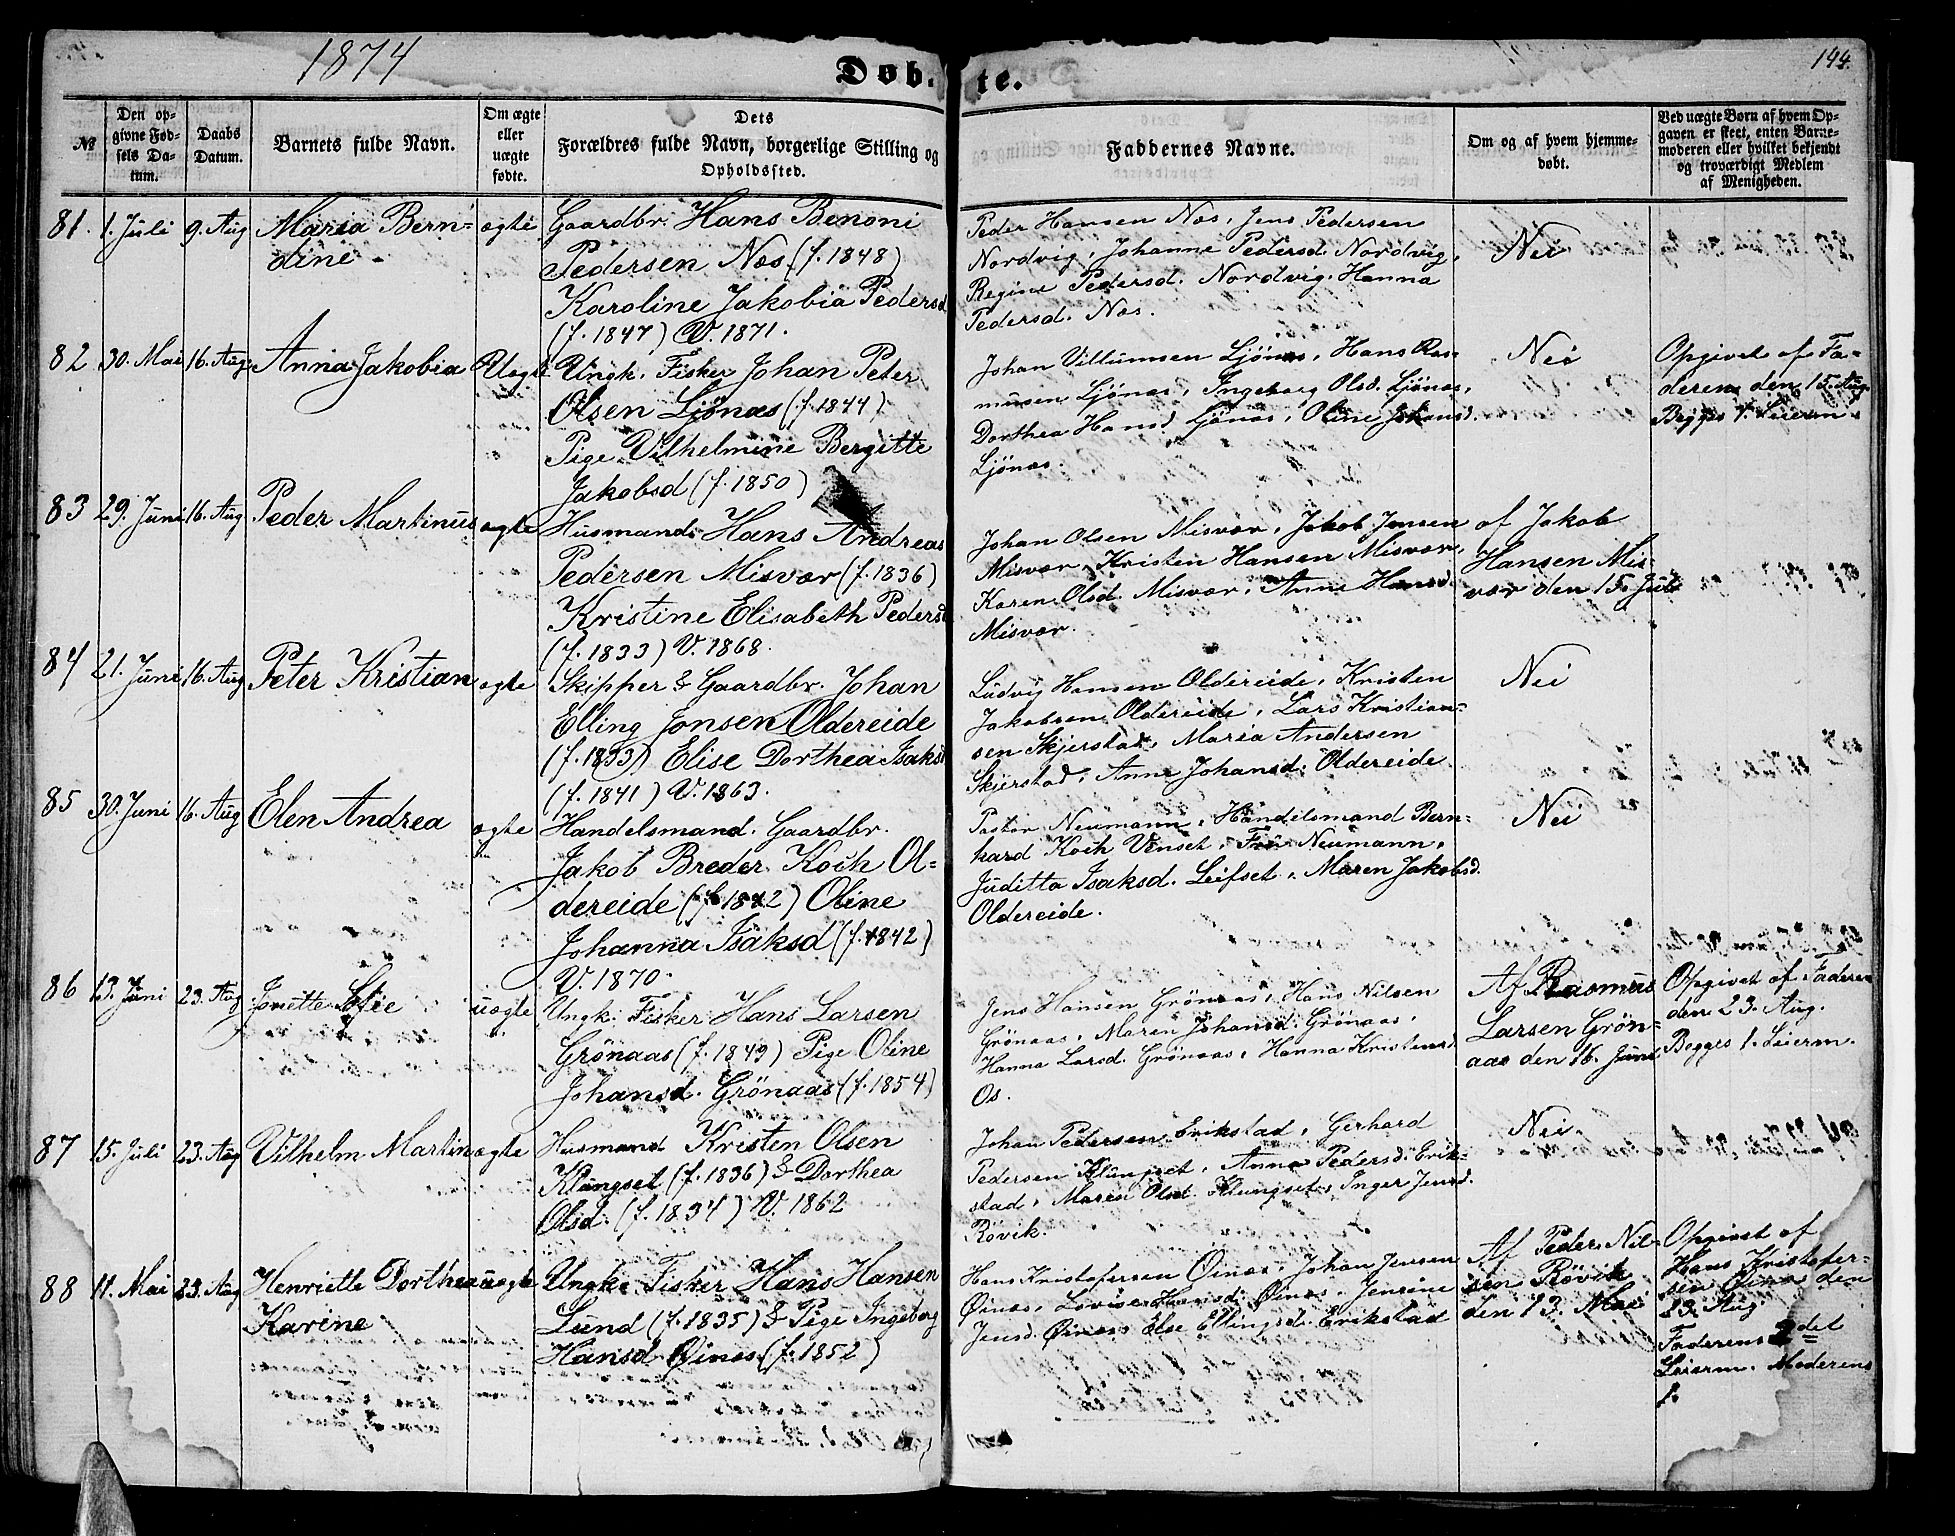 1874
Døbte.
144.
№
Den opgivne Fødsels Datum.
Daabs Datum.
Barnets fulde Navn.
Om ægte eller uægte fødte.
Dets Forældres fulde Navn, borgerlige Stilling og Opholdssted.
Faddernes Navne.
Om og af hvem hjemmedøbt.
Ved uægte Børn af hvem Opgaven er skeet, enten Barnemoderen eller hvilket bekjendt og troværdigt Medlem af Menigheden.
81. 1. Juli 9. Aug Maria Bern-
dine
ægte
Gaardbr. Hans Benoni
Pedersen Næs (f. 1848)
Karoline Jakobia Pedersd
(f. 1847) V. 1871.
Peder Hansen Næs, Jens Pedersen
Nordvig, Johanne Pedersd. Nordvig,
Regine Pedersd. Nordvig. Hanna
Pedersd. Næs.
Nei
82 30. Mai 16. Aug. Anna Jakobia Uægt
Ungk. Fisker Johan Peter
Olsen Ljönæs (f. 1844)
Pige Vilhelmine Bergitte
Jakobsd (f. 1850)
Johan Villumsen Ljönæs, Hans Ras-
musen Ljönæs, Ingeborg Olsd. Ljönæs,
Dorthea Hansd Ljönæs, Oline Johansd.
Ljönæs.
Nei
Opgivet af Fa-
deren den 15. Aug.
Begges 1. Leierm.
83 29. Juni 16. Aug Peder Martinus ægte
Husmand Hans Andreas
Pedersen Misvær (f. 1836)
Kristine Elisabeth Pedersd
(f. 1833) V. 1868.
Johan Olsen Misvær, Jakob Jensen
Misvær, Kristen Hansen Misvær,
Karen Olsd. Misvær, Anne Hansd.
Misvær.
af Jakob
Hansen Mis-
vær den 15. Juli
84 21. Juni 16. Aug Peter Kristian ægte
Skipper & Gaardbr. Johan
Elling Jonsen Oldereide
(f. 1833) Elise Dorthea Isaksd
(f. 1841) V. 1863.
Ludvig Hansen Oldereide, Kristen
Jakobsen Oldereide, Lars Kristian-
sen Skjerstad, Maria Andersen
Skjerstad, Anne Johansd. Oldereide
Nei
85 30. Juni 16. Aug Elen Andrea ægte
Handelsmand. Gaardbr.
Jakob Breder Koch Ol-
dereide (f. 1842) Oline
Johanna Isaksd (f. 1842)
V. 1870.
Pastor Neumann, Handelsmand Bern-
hard Koch Venset, Fru Neumann,
Juditta Isaksd. Leifset, Maren Jakobsd.
Oldereide.
Nei
86 13. Juni 23. Aug. Jonette Sofie uægte
Ungk. Fisker Hans Larsen
Grönaas (f. 1849) Pige Oline
Johansd. Grönaas (f. 1854)
Jens Hansen Grönaas, Hans Nilsen
Grönaas, Maren Johansd. Grönaas,
Hanna Larsd. Grönaas, Hanna Kristensd
Os.
Af Rasmus
Larsen Grön-
aas den 16. Juni
Opgivet af Faderen
den 23. Aug.
Begges 1. Leierm.
87 15. Juli 23. Aug Vilhelm Martin ægte
Husmand Kristen Olsen
Klungset (f. 1836) & Dorthea
Olsd. (f. 1834) V. 1862
Johan Pedersen Erikstad, Gerhard
Pedersen Klungset, Anna Pedersd. Erik-
stad, Maren Olsd. Klungset, Inger Jensd.
Rövik.
Nei
88 11. Mai 23. Aug Henriette Dorthea uægte
Karine
Ungk. Fisker Hans Hansen
Lund (f. 1835) & Pige Ingeborg
Hansd. Öinæs (f. 1852)
Hans Kristofersen Öinæs, Johan Jensen
Öinæs, Lovise Hansd. Öinæs, Jensine
Jensd. Öinæs, Else Ellingsd. Erikstad
Af Peder Nil-
sen Rövik
den 13. Mai
Opgivet af
Hans Kristofer-
sen Öinæs den
23 Aug.
Faderens 2det
Leierm. Moderens
1.